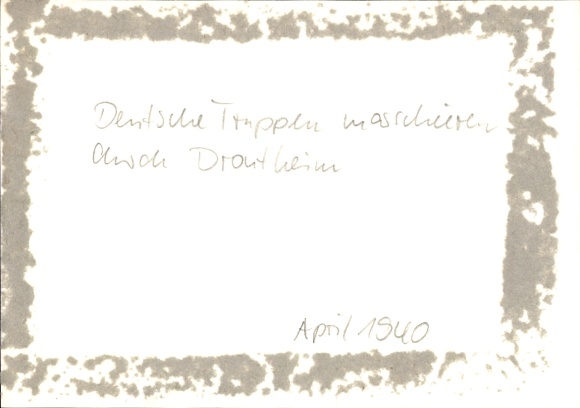 Deutsche Truppen marschieren
durch Drontheim
April 1940